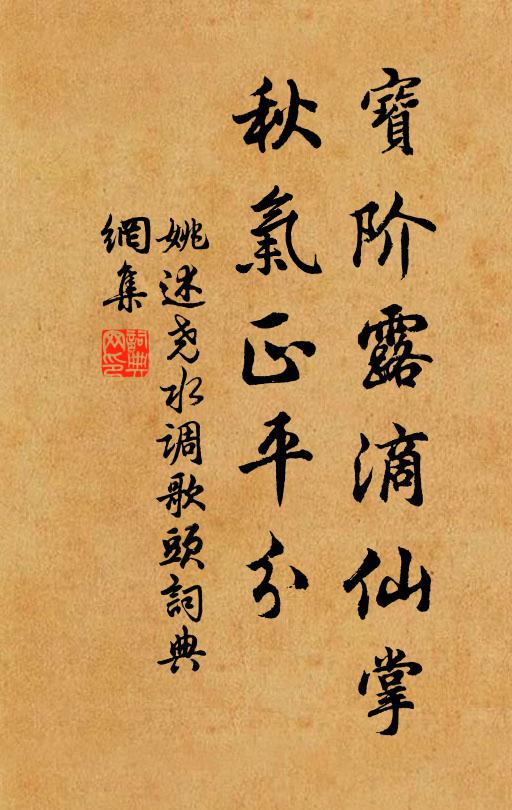 寶阶露滴仙掌
秋氣正平分
姚述尧水调歌頭詞典
網集
詞典
网印